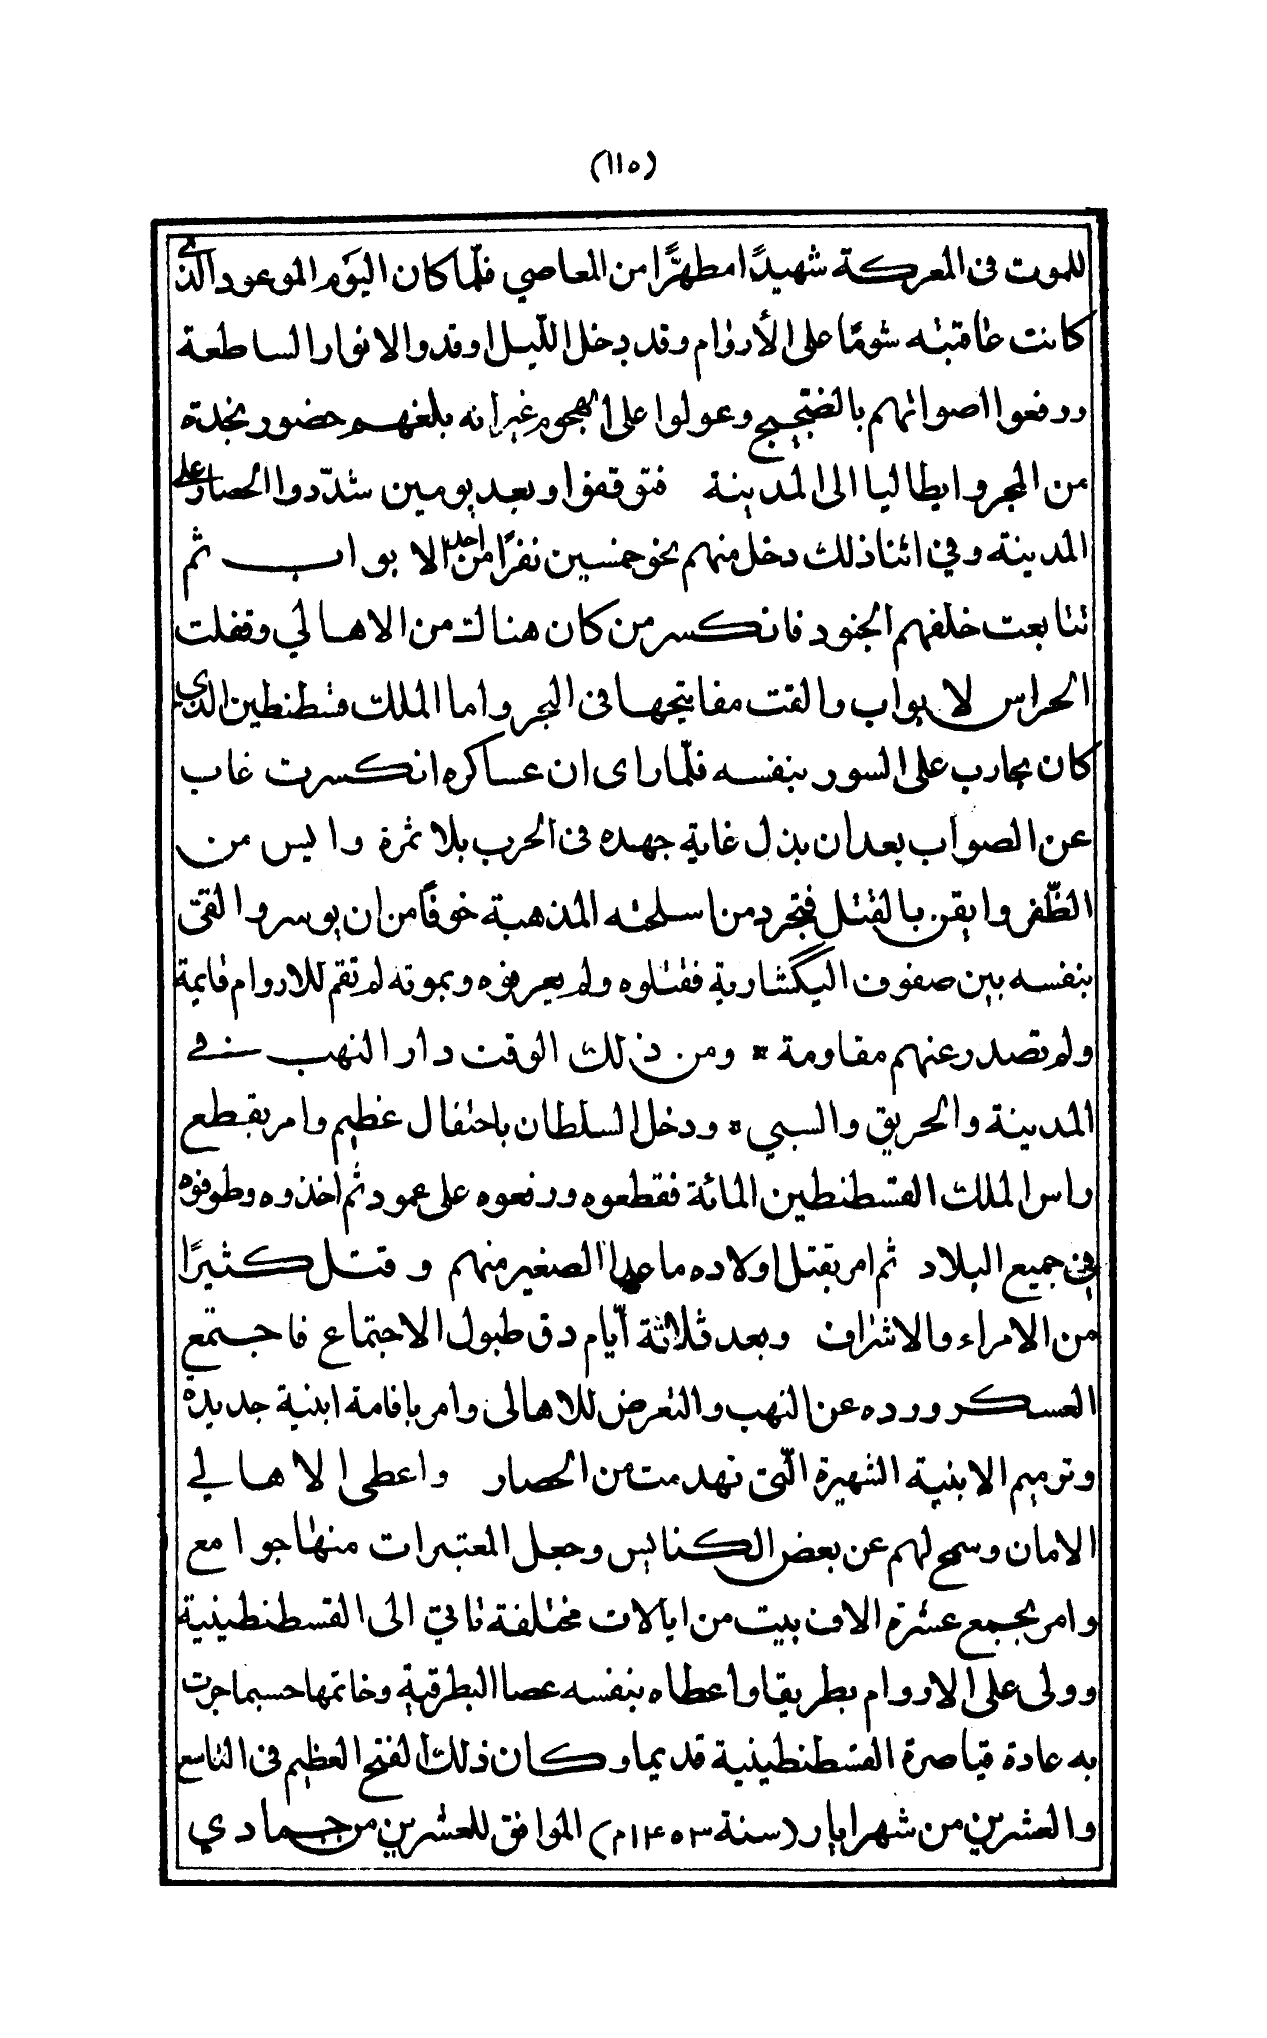 (١١٥)
للموت فى المعركة شهيدًا مطهرًّا من المعاصي فلمّا كان اليوم الموعود الذي
كانت عاقبته شومًا على الأروام وقد دخل اللّيل اوقدوا الانوار الساطعة
ورفعوا اصواتهم بالضّجيج وعولوا على الهجوم غير انه بلغهم حضور نجدة
من المجر وايطاليا الى المدينة فتوقفوا وبعد يومين شدّدوا الحصار على
المدينة وفي اثنا ذلك دخل منهم نحو خمسين نفرًا من احد الابواب ثم
تتابعت خلفهم الجنود فانكسر من كان هنالك من الاهالي وقفلت
الحراس لابواب والقت مفاتيحها فى البحر واما الملك قسطنطين الذي
كان يحارب على السور بنفسه فلمّا راى ان عساكره انكسرت غاب
عن الصواب بعد ان بذل غاية جهده فى الحرب بلا ثمرة وايس من
الظّفر وايقن بالقتل فتجرد من اسلحته المذهبة خوفًا من ان يوسر والقى
بنفسه بين صفوف اليكشارية فقتلوه ولم يعرفوه وبموته لم تقم للاروام قايمة
ولم تصدر عنهم مقاومة * ومن ذلك الوقت دار النهب في
المدينة والحريق والسبي * ودخل السلطان باحتفال عظيم وامر بقطع
راس الملك القسطنطين المائة فقطعوه ورفعوه على عمود ثم اخذوه وطوفوه
في جميع البلاد ثم امر بقتل اولاده ما عدا الصغير منهم وقتل كثيرًا
من الامراء والاشراف وبعد ثلاثة أيّام دق طبول الاجتماع فاجتمع
العسكر ورده عن النهب والتعرض للاهالى وامر بإقامة ابنية جديدة
وترميم الابنية الشهيرة الّتى تهدمت من الحصار واعطى الاهالي
الامان وسمح لهم عن بعض الكنايس وجعل المعتبرات منها جوامع
وامر بجمع عشرة الاف بيت من ايالات مختلفة تاتي الى القسطنطينية
وولى على الاروام بطريقا واعطاه بنفسه عصا البطرقية وخاتمها حسبما جرت
به عادة قياصرة القسطنطينية قديما وكان ذلك الفتح العظيم فى التاسع
والعشرين من شهر ايار (سنة ١٤٥٣م) الموافق للعشرين من جمادي